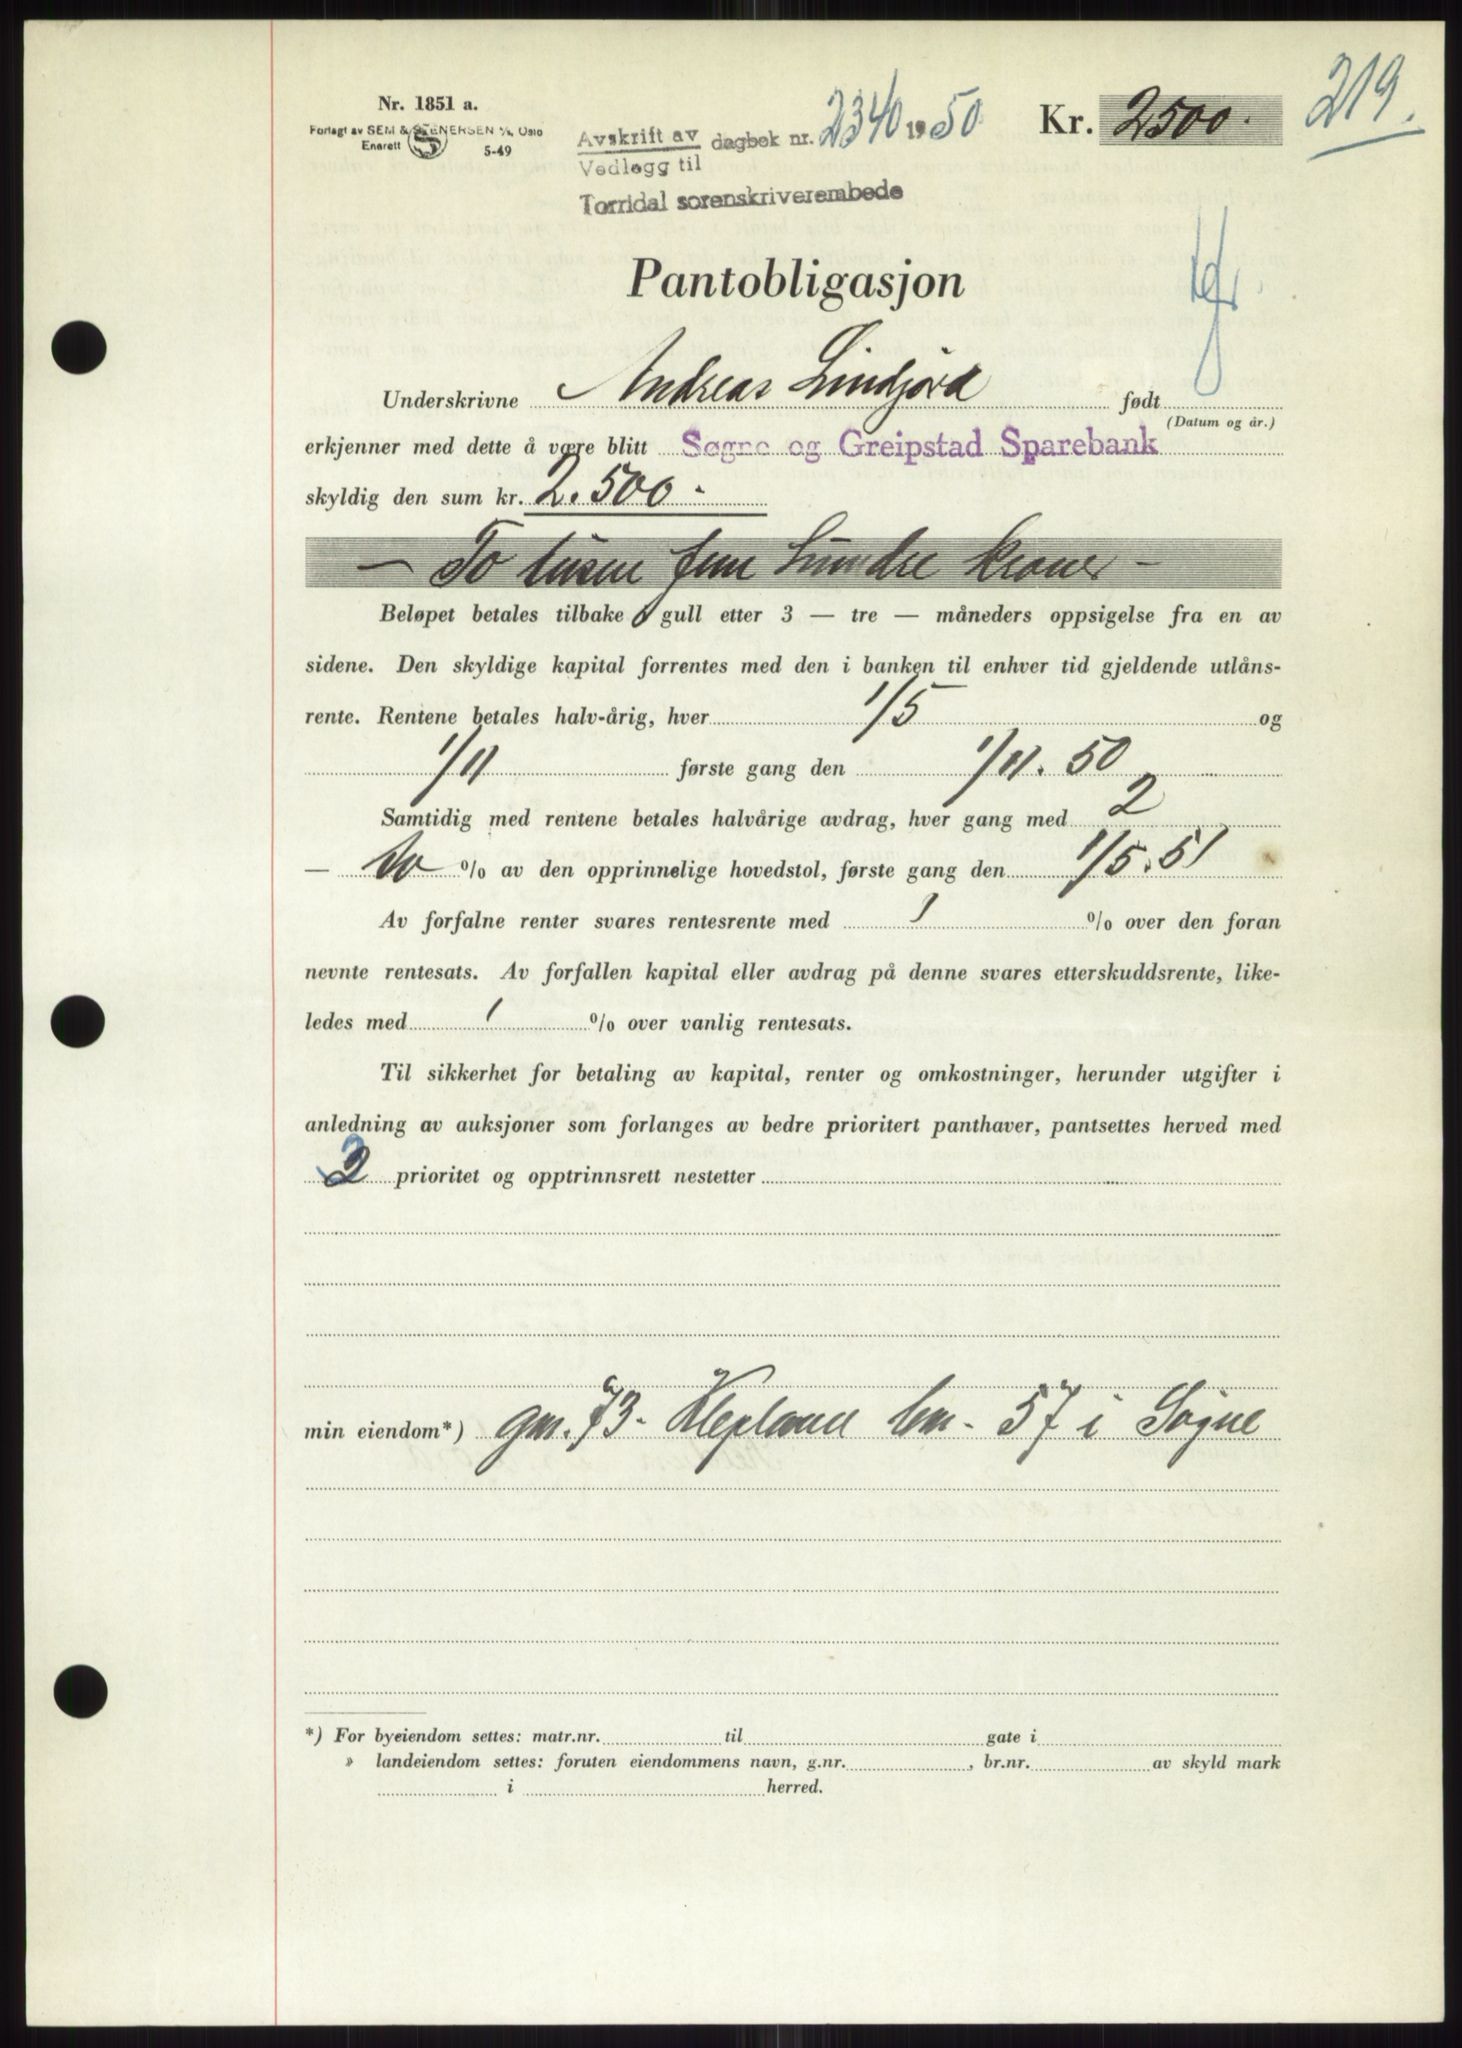 219.
Nr. 1851 a.
Forlagt av SEM & STENERSEN A/S, Oslo
Enerett 5-49
Avskrift av dagbok nr. 2340 1950
Vedlegg til
Torridal sorenskriverembede
Kr. 2500.
Pantobligasjon
Underskrivne Andreas Lindjord født
(Datum og år.)
erkjenner med dette å være blitt Søgne og Greipstad Sparebank
skyldig den sum kr. 2.500.-
— To tusen fem hundre kroner —
Beløpet betales tilbake i gull etter 3 — tre — måneders oppsigelse fra en av
sidene. Den skyldige kapital forrentes med den i banken til enhver tid gjeldende utlåns-
rente. Rentene betales halv-årig, hver 1/5 og
1/11 første gang den 1/11. 50
Samtidig med rentene betales halvårige avdrag, hver gang med 2
— to % av den opprinnelige hovedstol, første gang den 1/5. 51
Av forfalne renter svares rentesrente med 1 % over den foran
nevnte rentesats. Av forfallen kapital eller avdrag på denne svares etterskuddsrente, like-
ledes med 1 % over vanlig rentesats.
Til sikkerhet for betaling av kapital, renter og omkostninger, herunder utgifter i
anledning av auksjoner som forlanges av bedre prioritert panthaver, pantsettes herved med
2 prioritet og opptrinnsrett nestetter
min eiendom*) gnr. 73. Klepland bnr. 57 i Søgne
*) For byeiendom settes: matr.nr. til gate i
» landeiendom settes: foruten eiendommens navn, g.nr. , br.nr. av skyld mark
i herred.